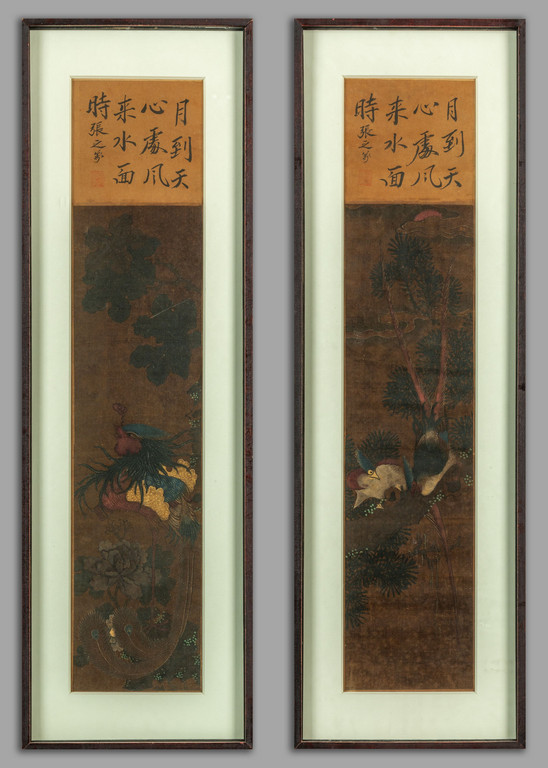 月到天
心處風
来水面
時
張之萬
月到天
心處風
来水面
時
張之萬